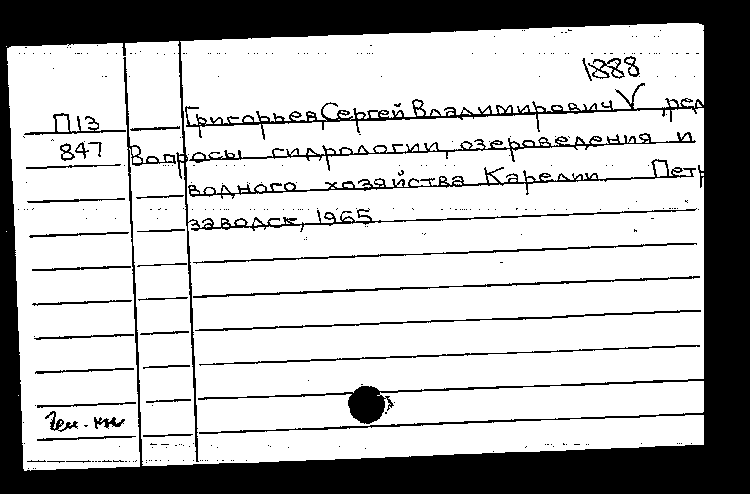 1888
П13 Григорьев, Сергей Владимирович V , ред
847 Вопросы гидрологии, озероведения и
водного хозяйства Карелии Петр
заводск, 1965.